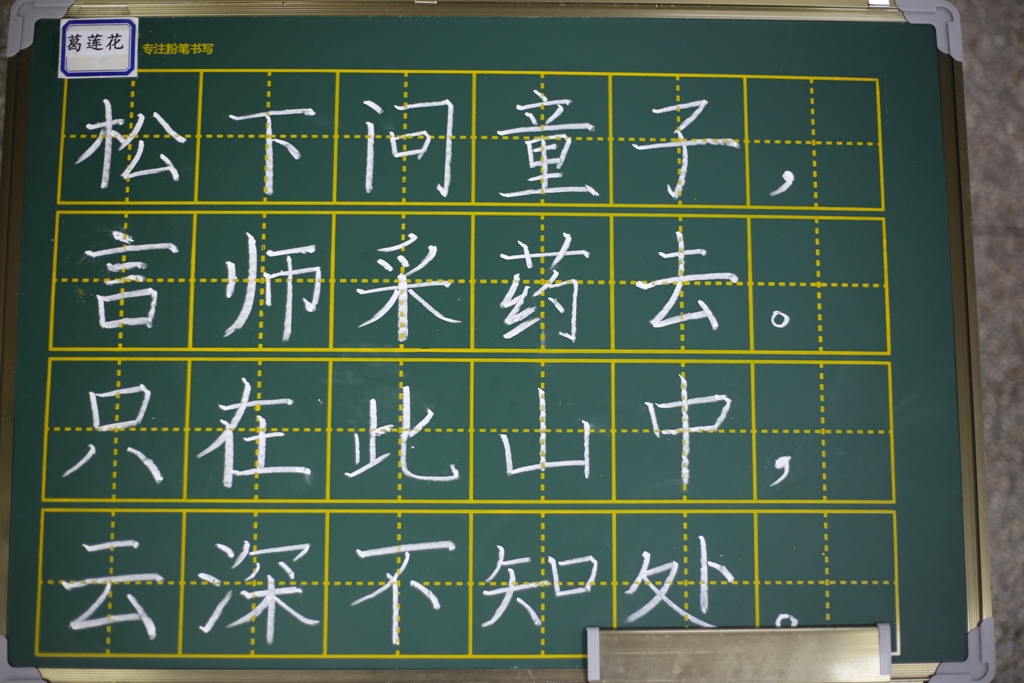 葛莲花
专注粉笔书写
松下问童子，
言师采药去。
只在此山中，
云深不知处。